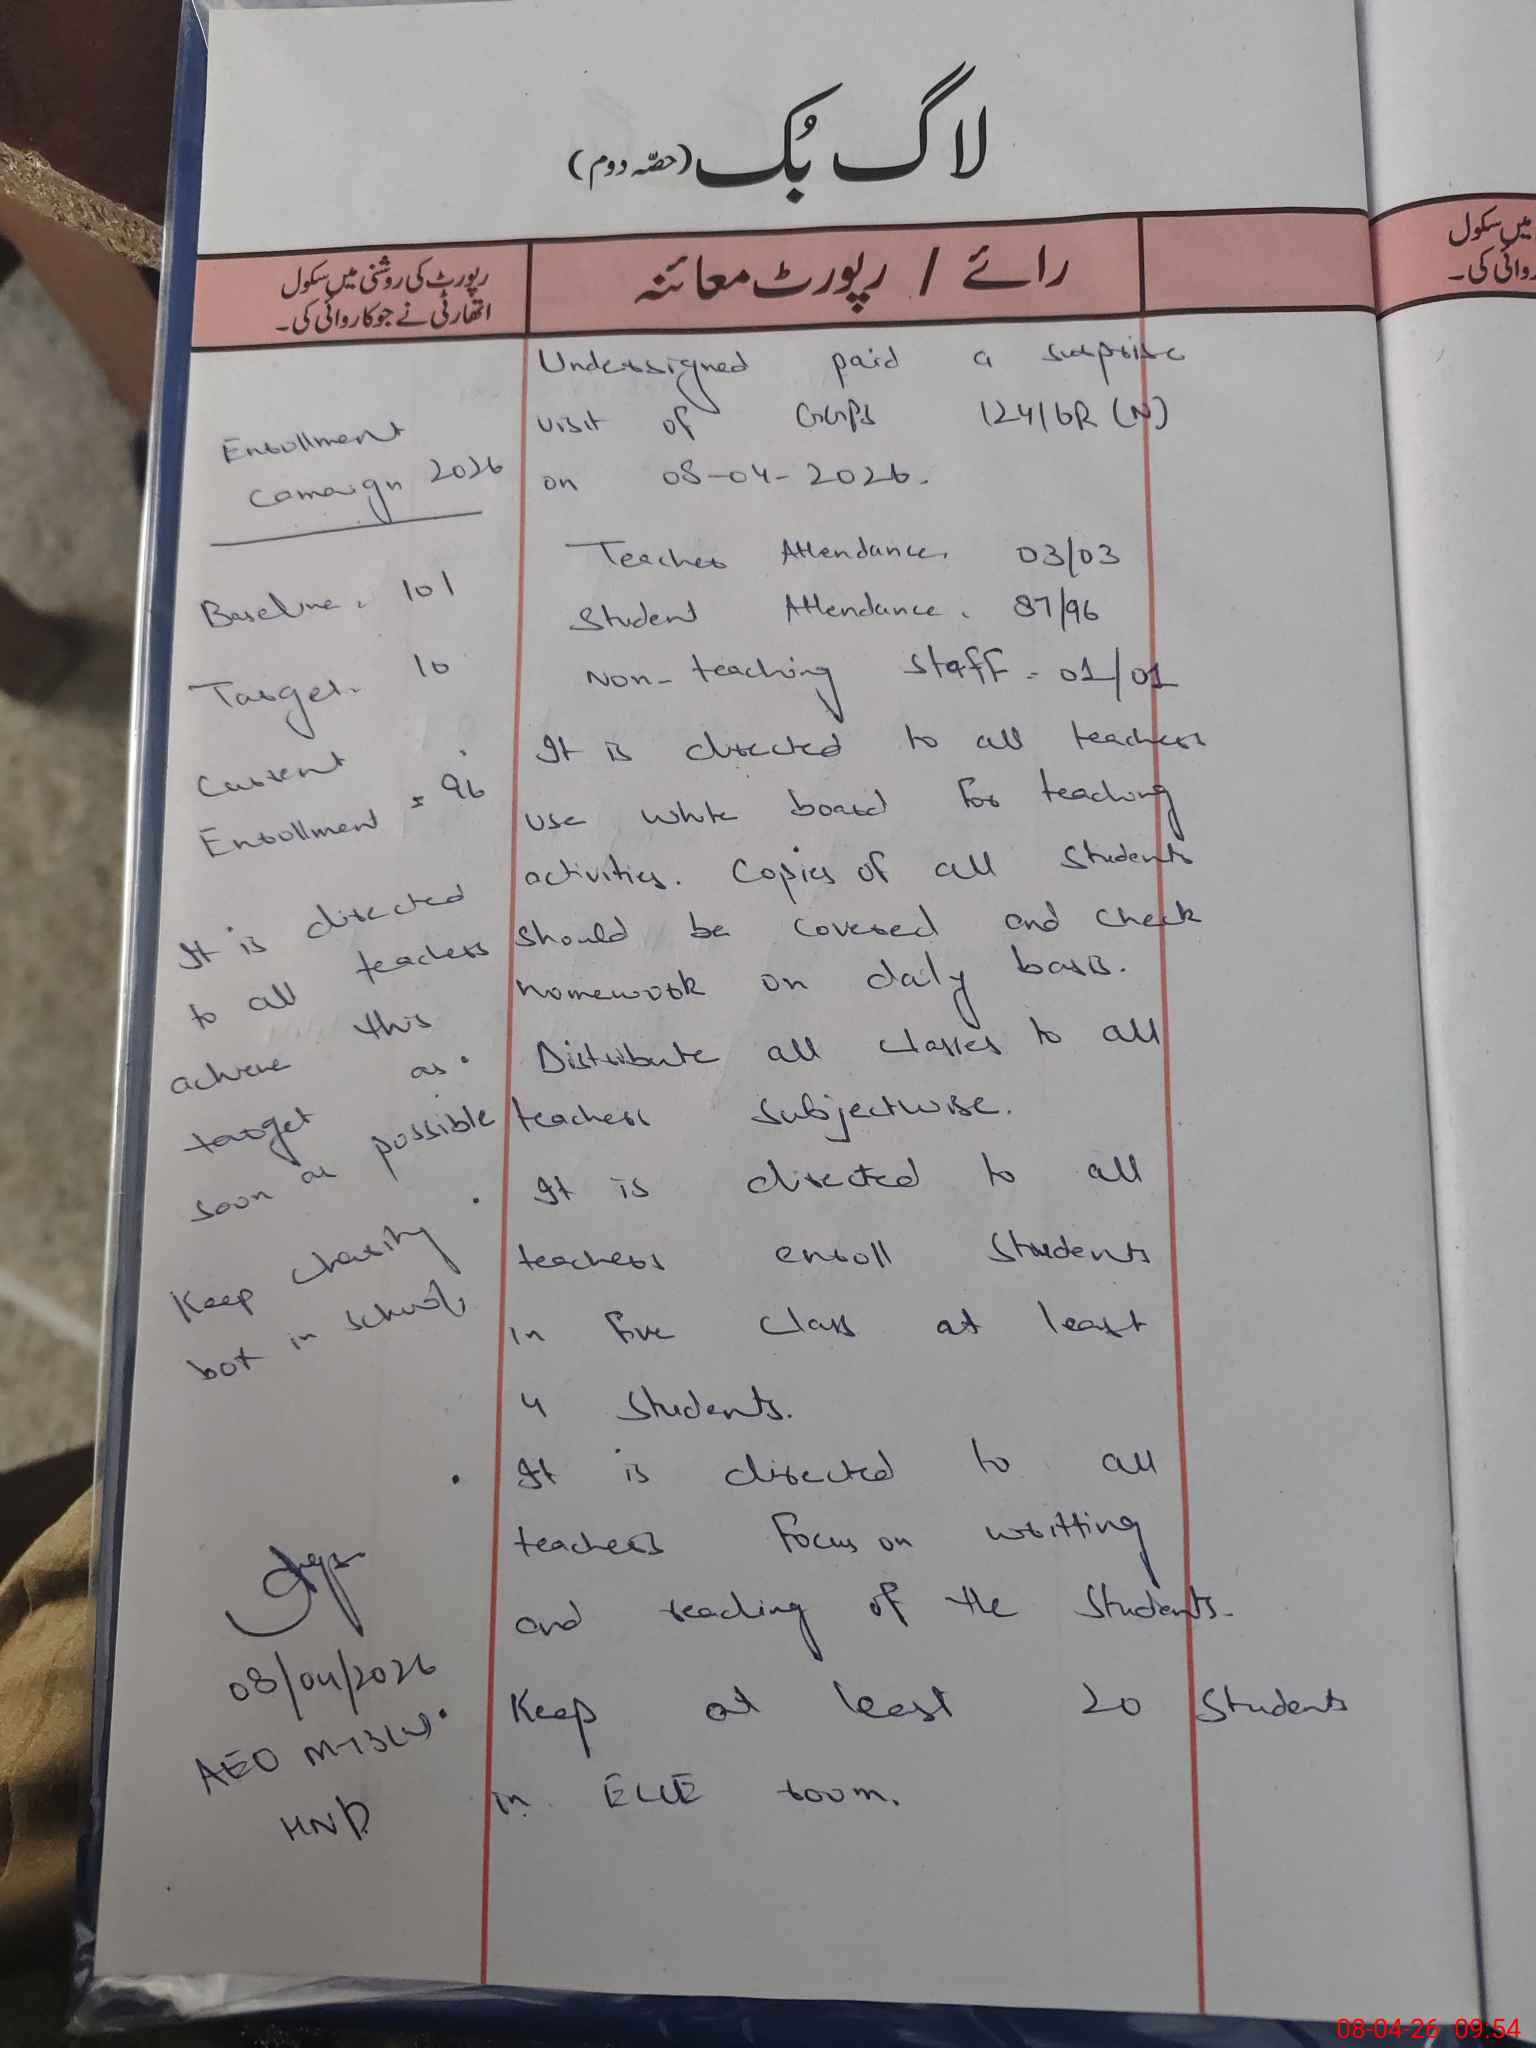 لاگ بُک (حصّہ دوم)
رائے / رپورٹ معائنہ
رپورٹ کی روشنی میں سکول
اتھارٹی نے جو کاروائی کی۔
میں سکول
روائی کی۔
Undersigned paid a surprise
visit of GGPS 124/6R (N)
on 08-04-2026.
Teacher Attendance. 03/03
Student Attendance. 87/96
Non-teaching staff - 01/01
It is directed to all teachers
use white board for teaching
activities. Copies of all students
should be covered and check
homework on daily basis.
Distribute all classes to all
teachers subjectwise.
It is directed to all
teachers enroll students
in five class at least
4 students.
It is directed to all
teachers focus on writting
and reading of the students.
Keep at least 20 students
in room.
Enrollment
Camaign 2026
Baseline. 101
Target. 10
Current
Enrollment = 96
It is directed
to all teachers
achieve this
target as
soon as possible
Keep charity
box in school
08/04/2026
AEO
HND
08-04-26 09:54